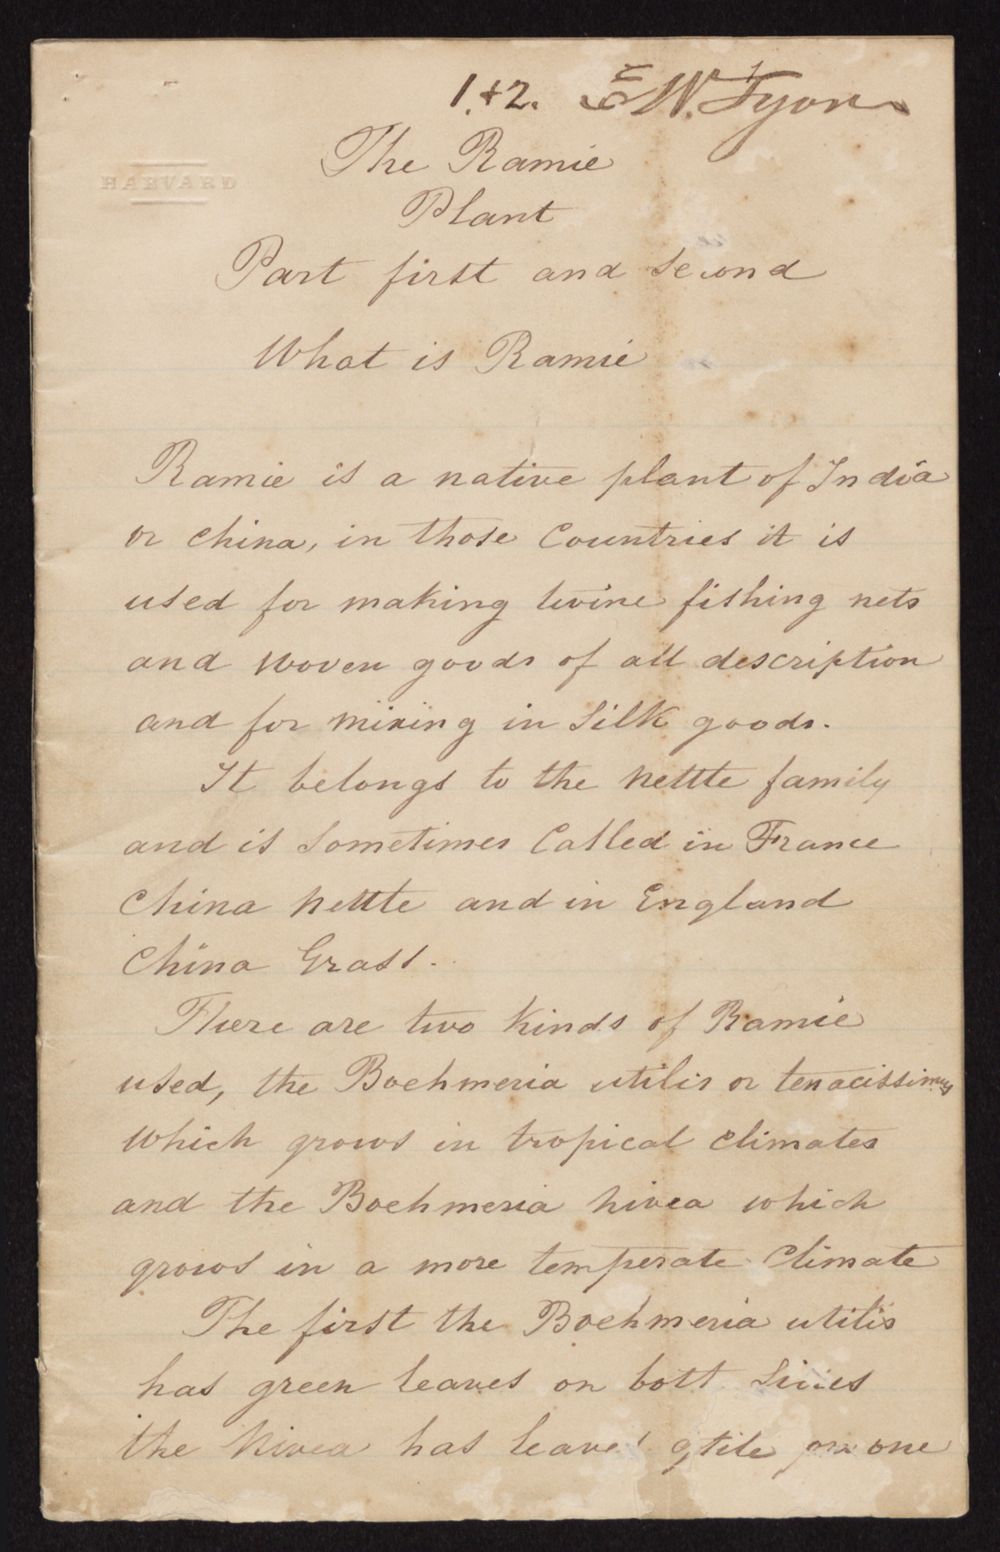 1.+2. E W. Fyon
HARVARD
The Ramie
Plant
Part first and second
What is Ramie
Ramie is a native plant of India
or China, in those Countries it is
used for making twine fishing nets
and woven goods of all description
and for mixing in Silk goods.
It belongs to the Nettle family
and is Sometimes Called in France
China Nettle and in England
China Grass.
There are two Kinds of Ramie
used, the Boehmeria utilis or tenacissimus
Which grows in tropical Climates
and the Boehmeria Nivea which
grows in a more temperate Climate
The first the Boehmeria utilis
has green leaves on both Sides
the Nivea has leaves on one